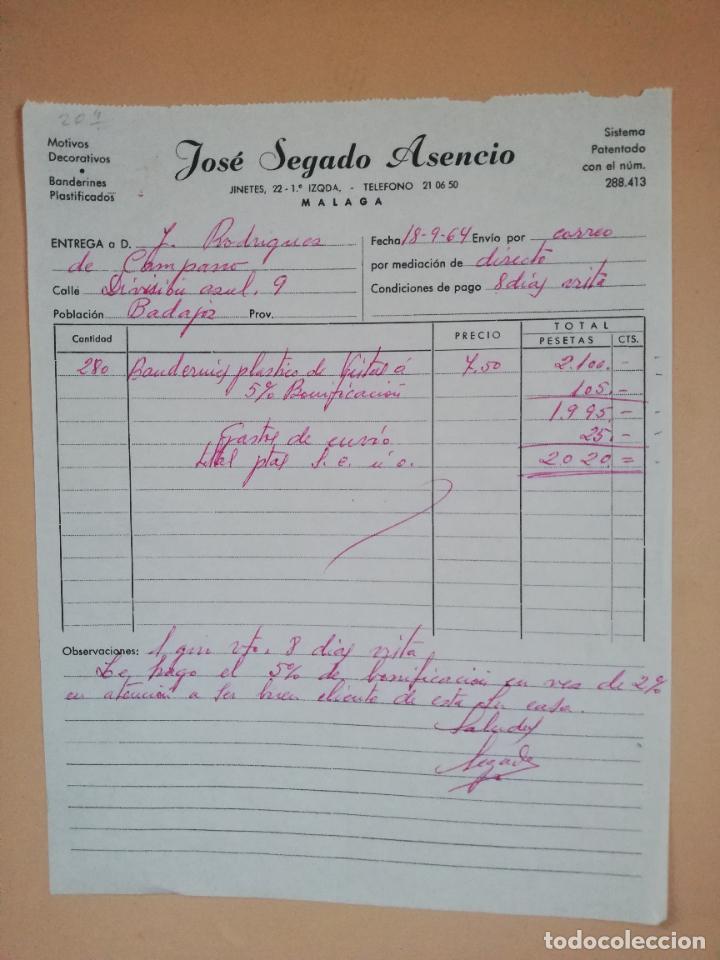 20 4
Motivos
Decorativos
•
Banderines
Plastificados
José Segado Asencio
JINETES, 22 - 1.º IZQDA. - TELEFONO 21 06 50
MALAGA
Sistema
Patentado
con el núm.
288.413
ENTREGA a D. J. Rodrigues
de Campano
Calle División azul, 9
Población Badajoz Prov.
Fecha 18-9-64 Envío por correo
por mediación de directo
Condiciones de pago 8 dias vista
Cantidad PRECIO TOTAL
PESETAS CTS.
280 Banderines plastico de Vistas á 7,50 2.100.-
5% Bonificación 105.-
1.995.-
Gastos de envío 25.-
total ptas S. e. ú o. 2.020 =
Observaciones: 1 giro vto. 8 dias vista
Le hago el 5% de bonificacion en ves de 2%
en atención a ser buen cliente de esta su casa.
Saludos
Segado
todocoleccion